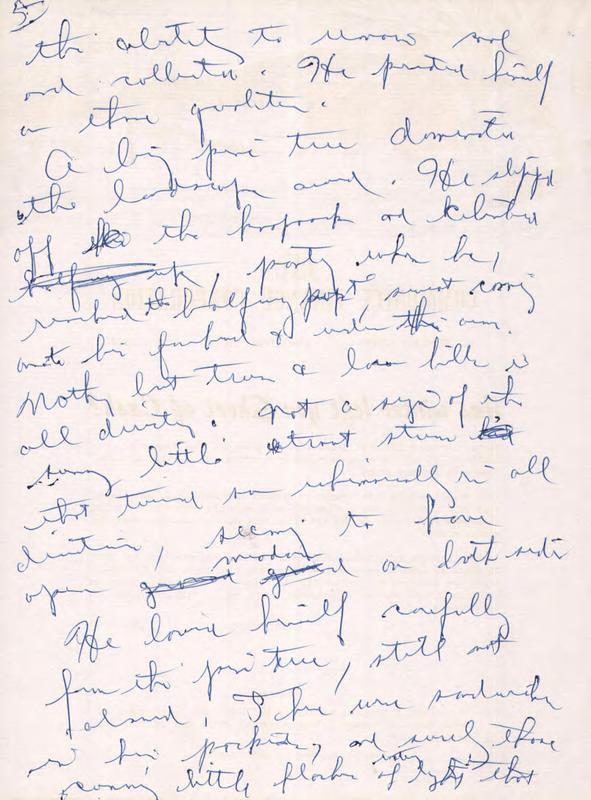 5
the ability to remain cool
and collected. He prided himself
on these qualities.
A big pine tree dominated
the landscape around. He slipped
off the knapsack and
up, panting when he,
reached the halfway point, sweat coming
onto his forehead & under the arm.
Nothing but trees & low hills in
all directions. Not a sign of the
sunny little trout stream
that twined so whimsically in all
directions, seeming to have
open meadow on both sides
He lowered himself carefully
from the pine tree, still not
alarmed. There were sandwiches
in his pockets, and surely those
coming little flashes of light that